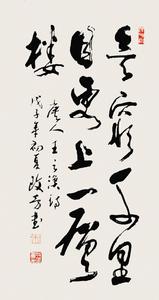 欲穷千里
目更上一层
楼
唐人王之涣诗
戊子年初夏改芳书